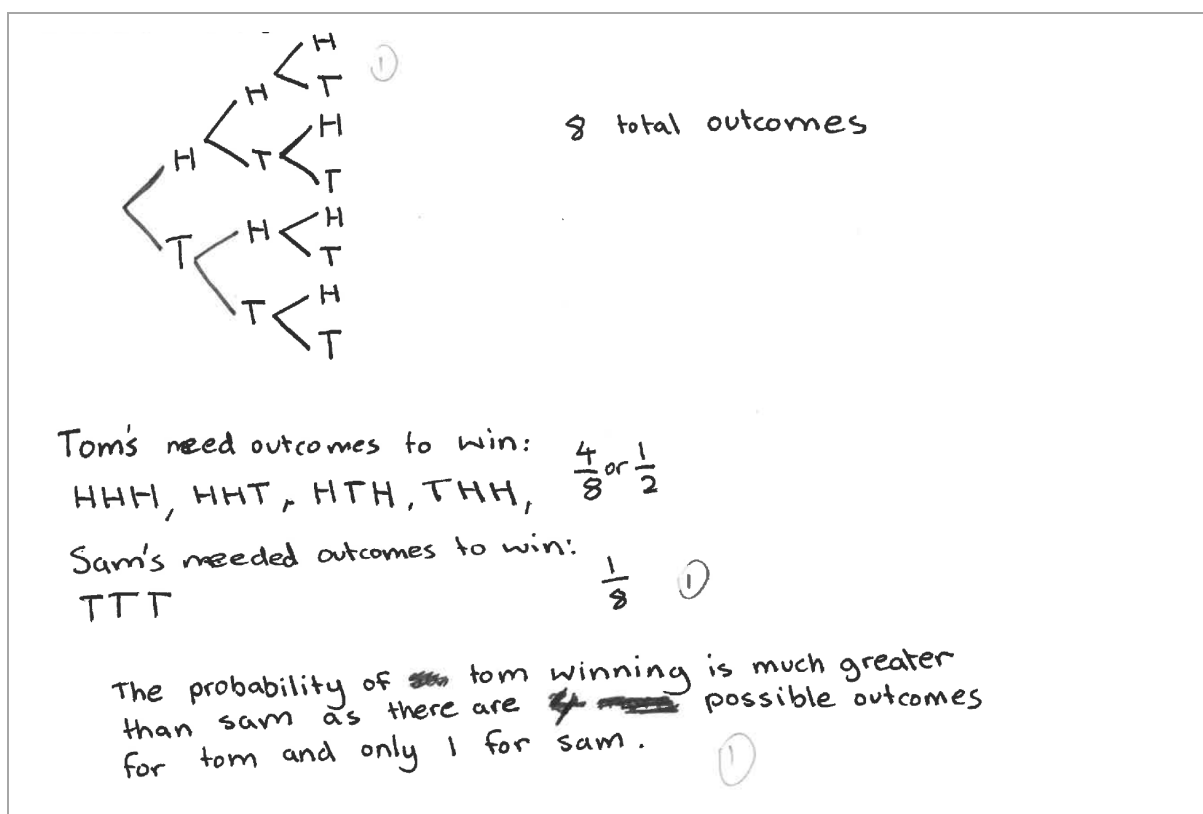 H
H
T
①
H
T
H
T
8 total outcomes
H
T
H
T
T
H
H
T
Tom's need outcomes to win: 4/8 or 1/2
HHH, HHT, HTH, THH,
Sam's needed outcomes to win:
TTT 1/8 ①
The probability of tom winning is much greater
than sam as there are possible outcomes
for tom and only 1 for sam.
①